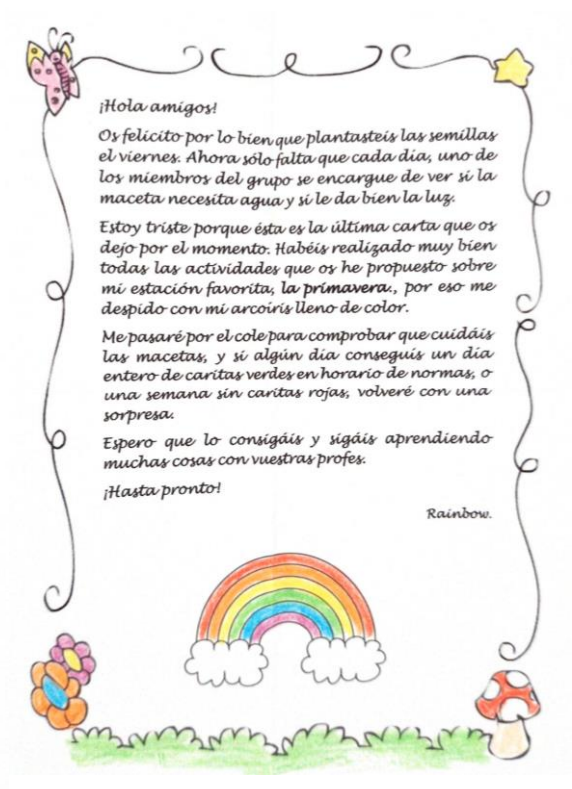 ¡Hola amigos!
Os felicito por lo bien que plantasteis las semillas
el viernes. Ahora sólo falta que cada día, uno de
los miembros del grupo se encargue de ver si la
maceta necesita agua y si le da bien la luz.
Estoy triste porque ésta es la última carta que os
dejo por el momento. Habéis realizado muy bien
todas las actividades que os he propuesto sobre
mi estación favorita, la primavera., por eso me
despido con mi arcoíris lleno de color.
Me pasaré por el cole para comprobar que cuidáis
las macetas, y si algún día conseguís un día
entero de caritas verdes en horario de normas, o
una semana sin caritas rojas, volveré con una
sorpresa.
Espero que lo consigáis y sigáis aprendiendo
muchas cosas con vuestras profes.
¡Hasta pronto!
Rainbow.